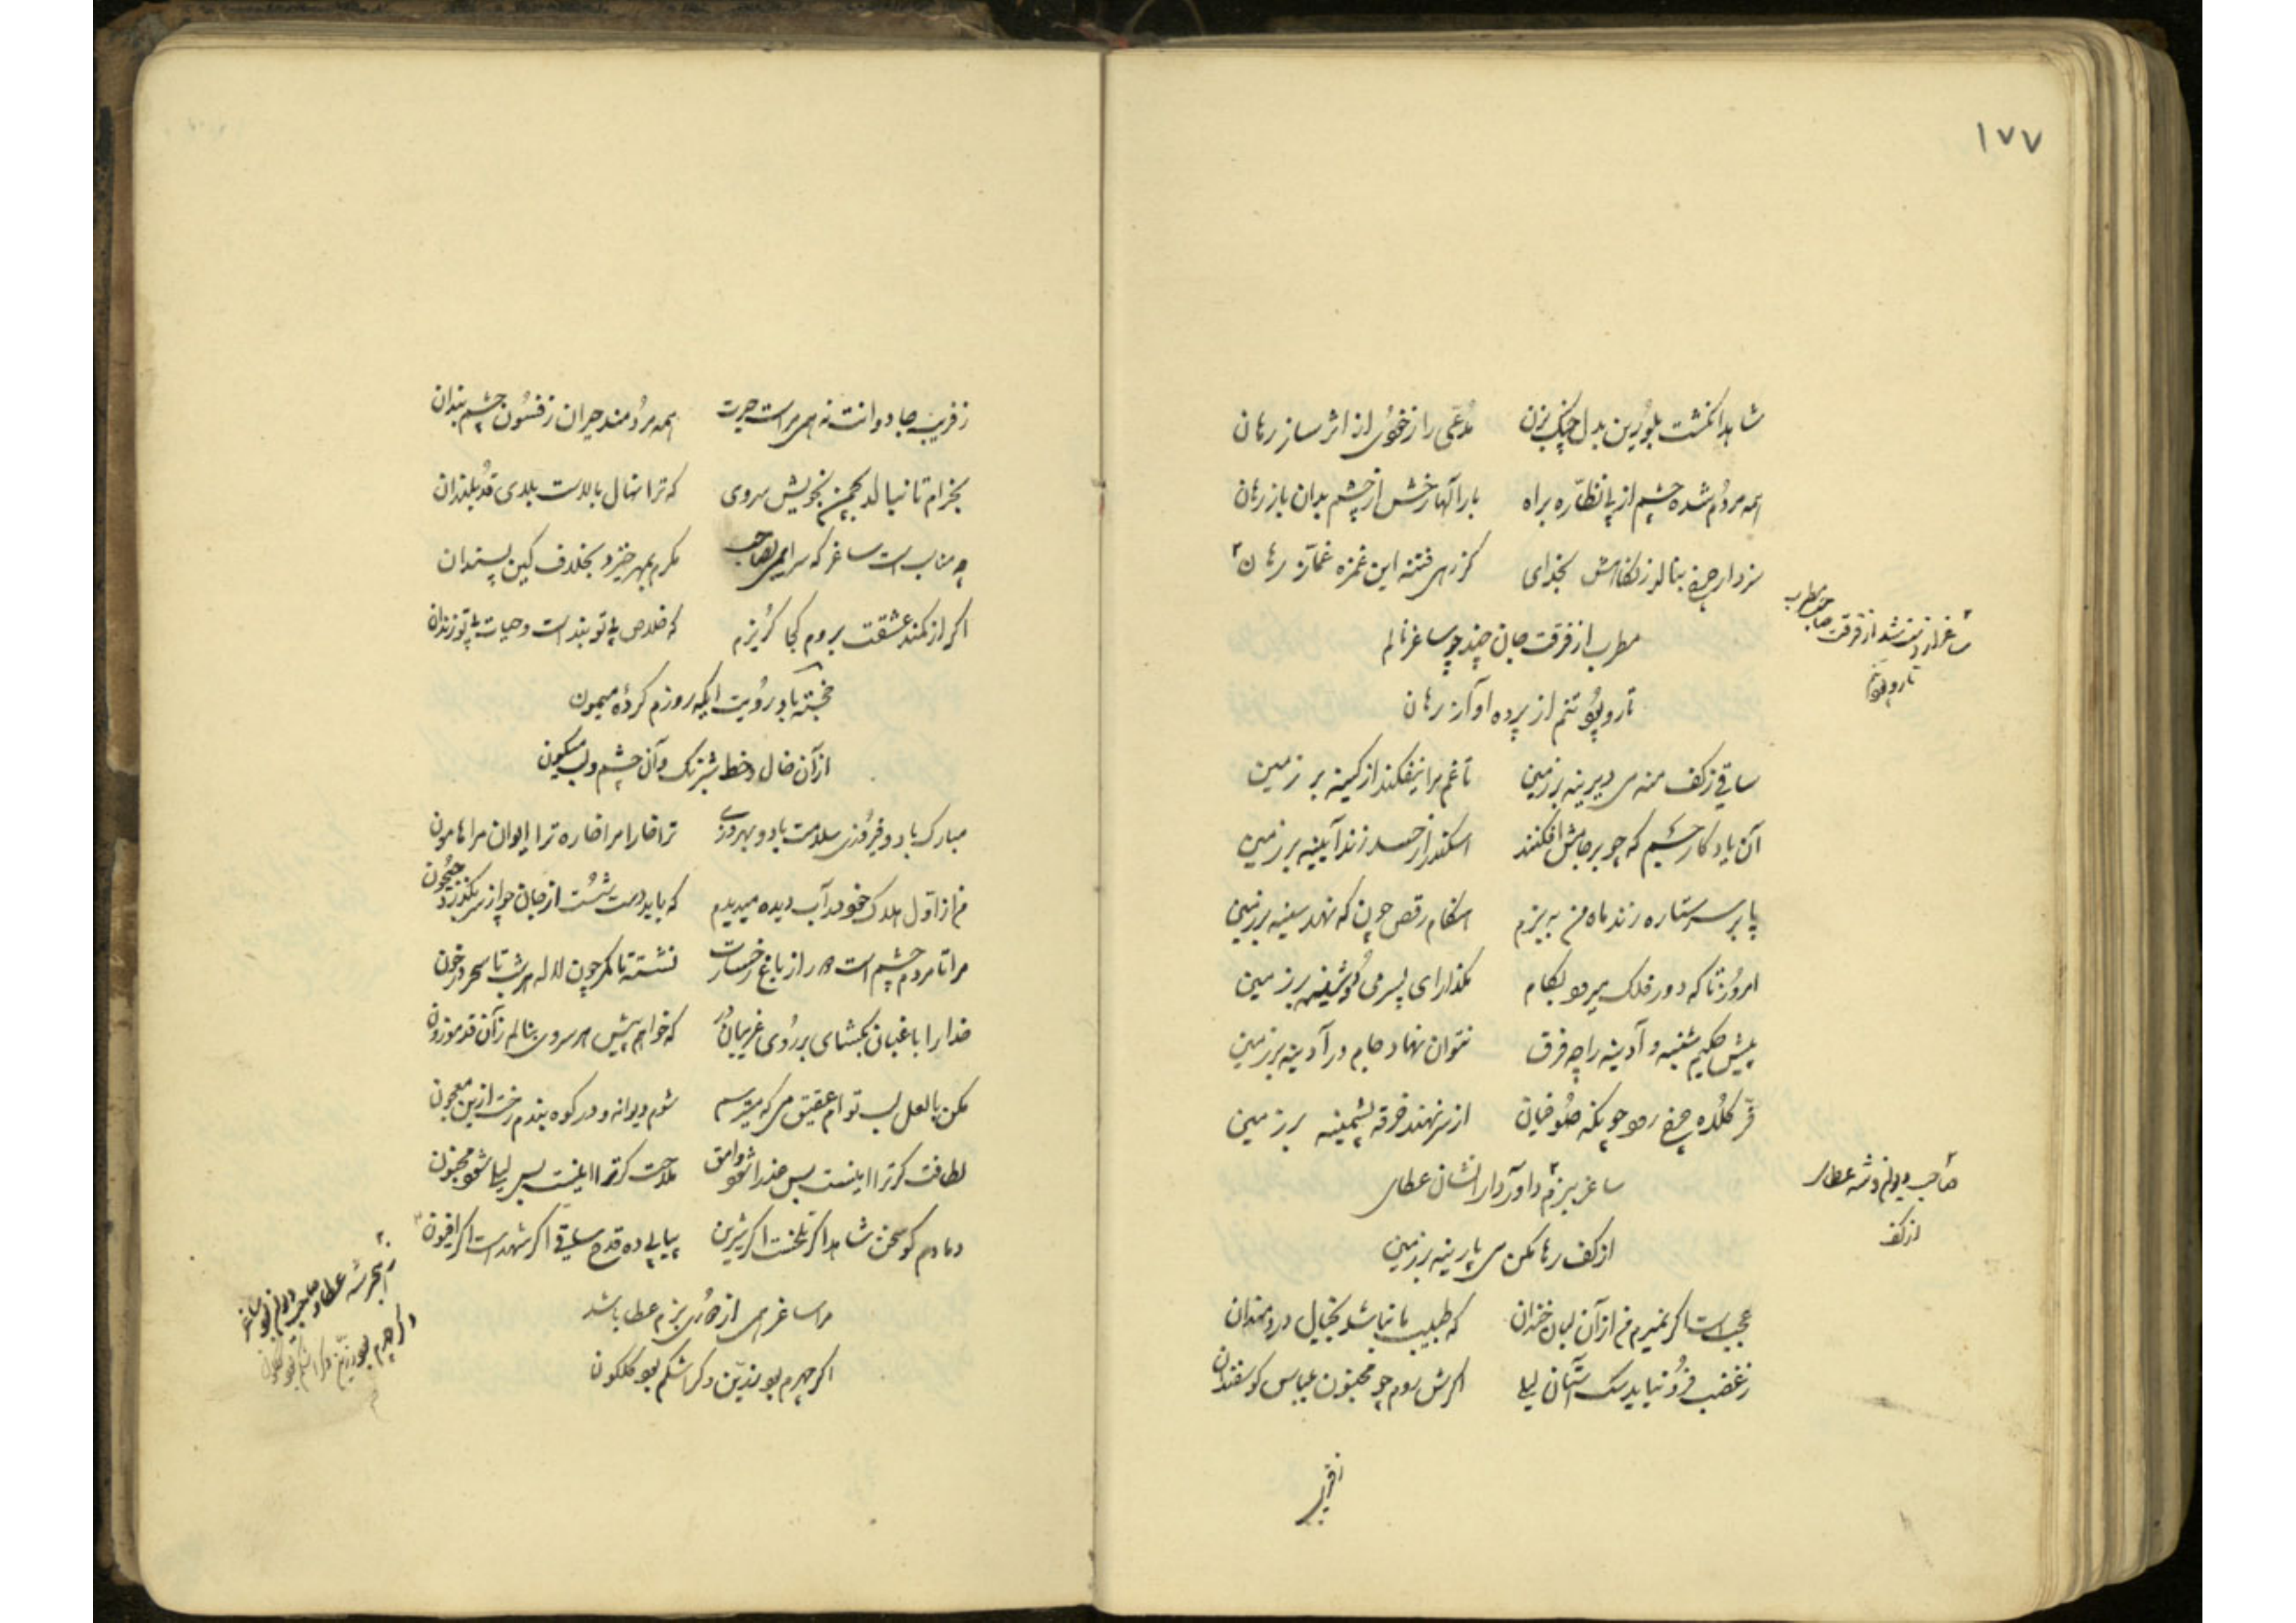 ۱۷۷
شاهد انگشت بلورین بدل چنگ بزن مدعی را زخوی از اثر ساز رهان
همه مردم شده چشم از پی نظاره براه بارالها رخش از چشم بدان باز رهان
سزد ار چرخ بنالد ز نگاهش بخدای کز زهی فتنه این غمزه غماز رهان
مطرب از فرقت جان چند چو ساغر نالم
تار و پود تنم از پرده آواز رهان
ساقی ز کف منه می دیرینه بر زمین تا غم مرا نیفکند از کینه بر زمین
آن یادگار جم که چو بر جامش افکنند اسکندر از حسد زند آیینه بر زمین
پا بر سر ستاره زند ماه من به بزم هنگام رقص چون که نهد سینه بر زمین
امروز تا که دور فلک میرود بکام مگذار ای پسر می دوشینه بر زمین
پیش حکیم شنبه و آدینه را چه فرق نتوان نهاد جام در آدینه بر زمین
فر کله چرخ رود چونکه صوفیان از سر نهند خرقه پشمینه بر زمین
ساغر ببزم داور دارا نشان عطای
از کف رها مکن می پارینه بر زمین
عجب است اگر نمیرم من از آن لبان خندان که طبیب ما نباشد بخیال دردمندان
ز غضب فرو نیاید سگ آستان لیلی اگرش روم چو مجنون بلباس گوسفندان
ساغر از فرقت
تار و پود تنم
صاحب دیوانم وشه عطای
از کف
ز فریب
ز فریب جادوانت نه همی مراست حیرت همه مردمند حیران ز فسون چشم بندان
بخرام تا نبالد بچمن بخویش سروی که ترا نهال بالاست بلای قد بلندان
چه مناسب است ساغر که سرایمی بصاحب مگرم بمهر خیزد بخلاف کین پسندان
اگر از کمند عشقت بروم کجا گریزم که خلاص بی تو بند است و حیات بی تو زندان
خجسته باد رویت ایکه روزم کردهٔ میمون
از آن خال و خط شبرنگ و آن چشم و لب میگون
مبارک باد و فیروزی سلامت باد و بهروزی ترا خارا مرا خاره ترا ایوان مرا هامون
من از اول هلاک خود در آب دیده میدیدم که باید دست شست از جان چو از سر بگذرد جیحون
مرا تا مردم چشم است دور از باغ رخسارت نشسته تا کمر چون لاله هر شب تا سحر در خون
خدا را باغبان بگشای بر روی غریبان در که خواهم پیش هر سروی بنالم زآن قد موزون
مکن با لعل لب توام عقیق می که میترسم شوم دیوانه و در کوه بندم رخت ازین معجون
لطافت گر ترا اینست بس عذرا شود وامق ملاحت گر ترا اینست بس لیلی شود مجنون
دمادم گو سخن شاهد اگر تلخست اگر شیرین پیاپی ده قدح ساقی اگر شهد است اگر افیون
مرا ساغر همی از بزم عطا باشد
اگر چهرم بود زرین و گر اشکم بود گلگون
ز بحر شه عطا و صاحب دیوانم بود ساغر
و گر چهرم بود زرین و گر اشکم بود گلگون